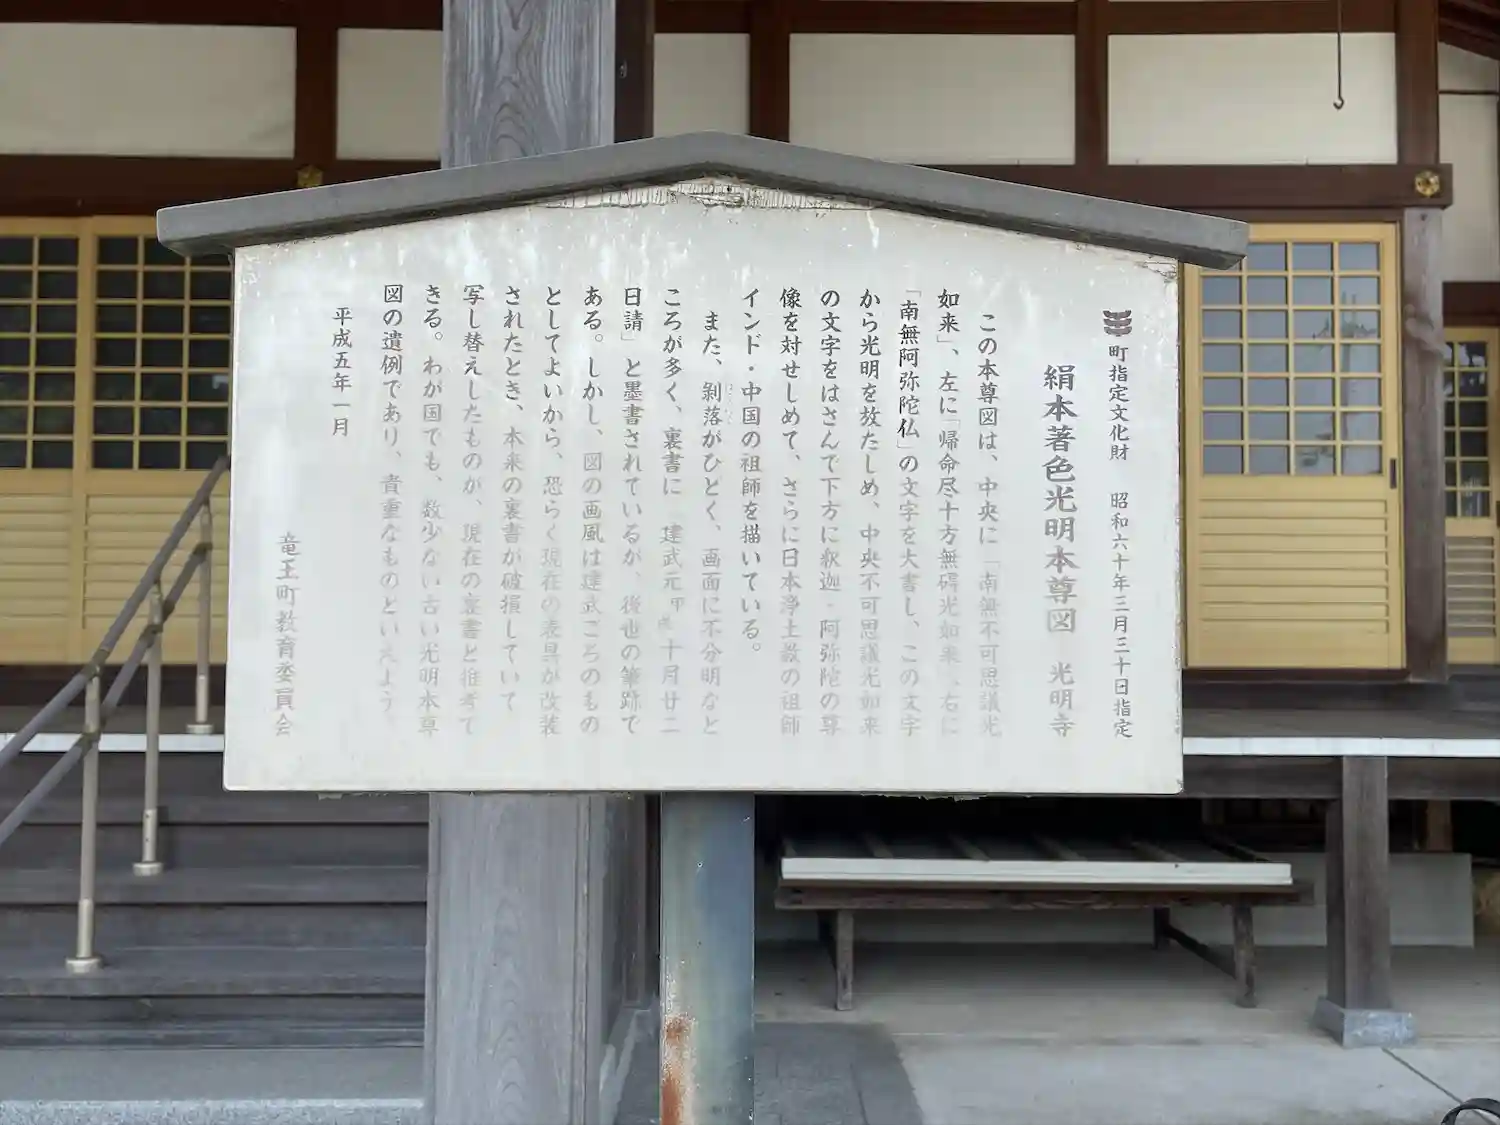 町指定文化財 昭和六十年三月三十日指定
絹本著色光明本尊図 光明寺
この本尊図は、中央に「南無不可思議光
如来」、左に「帰命尽十方無碍光如来、右に
「南無阿弥陀仏」の文字を大書し、この文字
から光明を放たしめ、中央不可思議光如来
の文字をはさんで下方に釈迦・阿弥陀の尊
像を対せしめて、さらに日本浄土教の祖師
インド・中国の祖師を描いている。
また、剝落がひどく、画面に不分明なと
ころが多く、裏書に 建武元甲 十月廿二
日請」と墨書されているが、後世の筆跡で
ある。しかし、図の画風は建武ごろのもの
としてよいから、恐らく現在の表具が改装
されたとき、本来の裏書が破損していて
写し替えしたものが、現在の裏書と推考で
きる。わが国でも、数少ない古い光明本尊
図の遺例であり、貴重なものといえよう。
平成五年一月
竜王町教育委員会